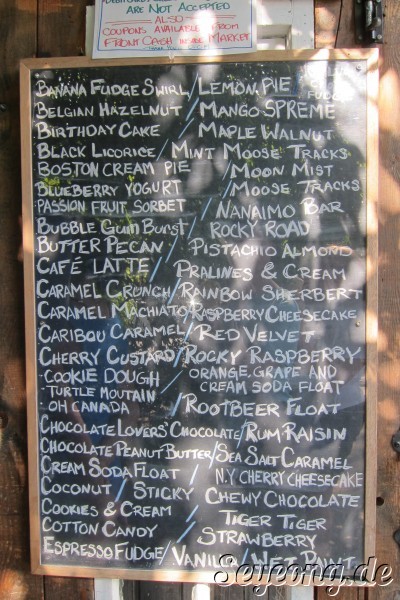 ARE NOT ACCEPTED
ALSO
COUPONS AVAILABLE FROM
FRONT CASH INSIDE MARKET
BANANA FUDGE SWIRL / LEMON PIE
BELGIAN HAZELNUT / MANGO SPREME
BIRTHDAY CAKE / MAPLE WALNUT
BLACK LICORICE / MINT MOOSE TRACKS
BOSTON CREAM PIE / MOON MIST
BLUEBERRY YOGURT / MOOSE TRACKS
PASSION FRUIT SORBET / NANAIMO BAR
BUBBLE GUM BURST / ROCKY ROAD
BUTTER PECAN / PISTACHIO ALMOND
CAFÉ LATTE / PRALINES & CREAM
CARAMEL CRUNCH / RAINBOW SHERBERT
CARAMEL MACHIATO / RASPBERRY CHEESECAKE
CARIBOU CARAMEL / RED VELVET
CHERRY CUSTARD / ROCKY RASPBERRY
COOKIE DOUGH / ORANGE, GRAPE AND
CREAM SODA FLOAT
TURTLE MOUTAIN
OH CANADA / ROOTBEER FLOAT
CHOCOLATE LOVERS' CHOCOLATE / RUM RAISIN
CHOCOLATE PEANUT BUTTER / SEA SALT CARAMEL
CREAM SODA FLOAT / N.Y CHERRY CHEESECAKE
COCONUT / STICKY CHEWY CHOCOLATE
COOKIES & CREAM / TIGER TIGER
COTTON CANDY / STRAWBERRY
ESPRESSO FUDGE / VANILLA / WET PAINT
Seyeong.de